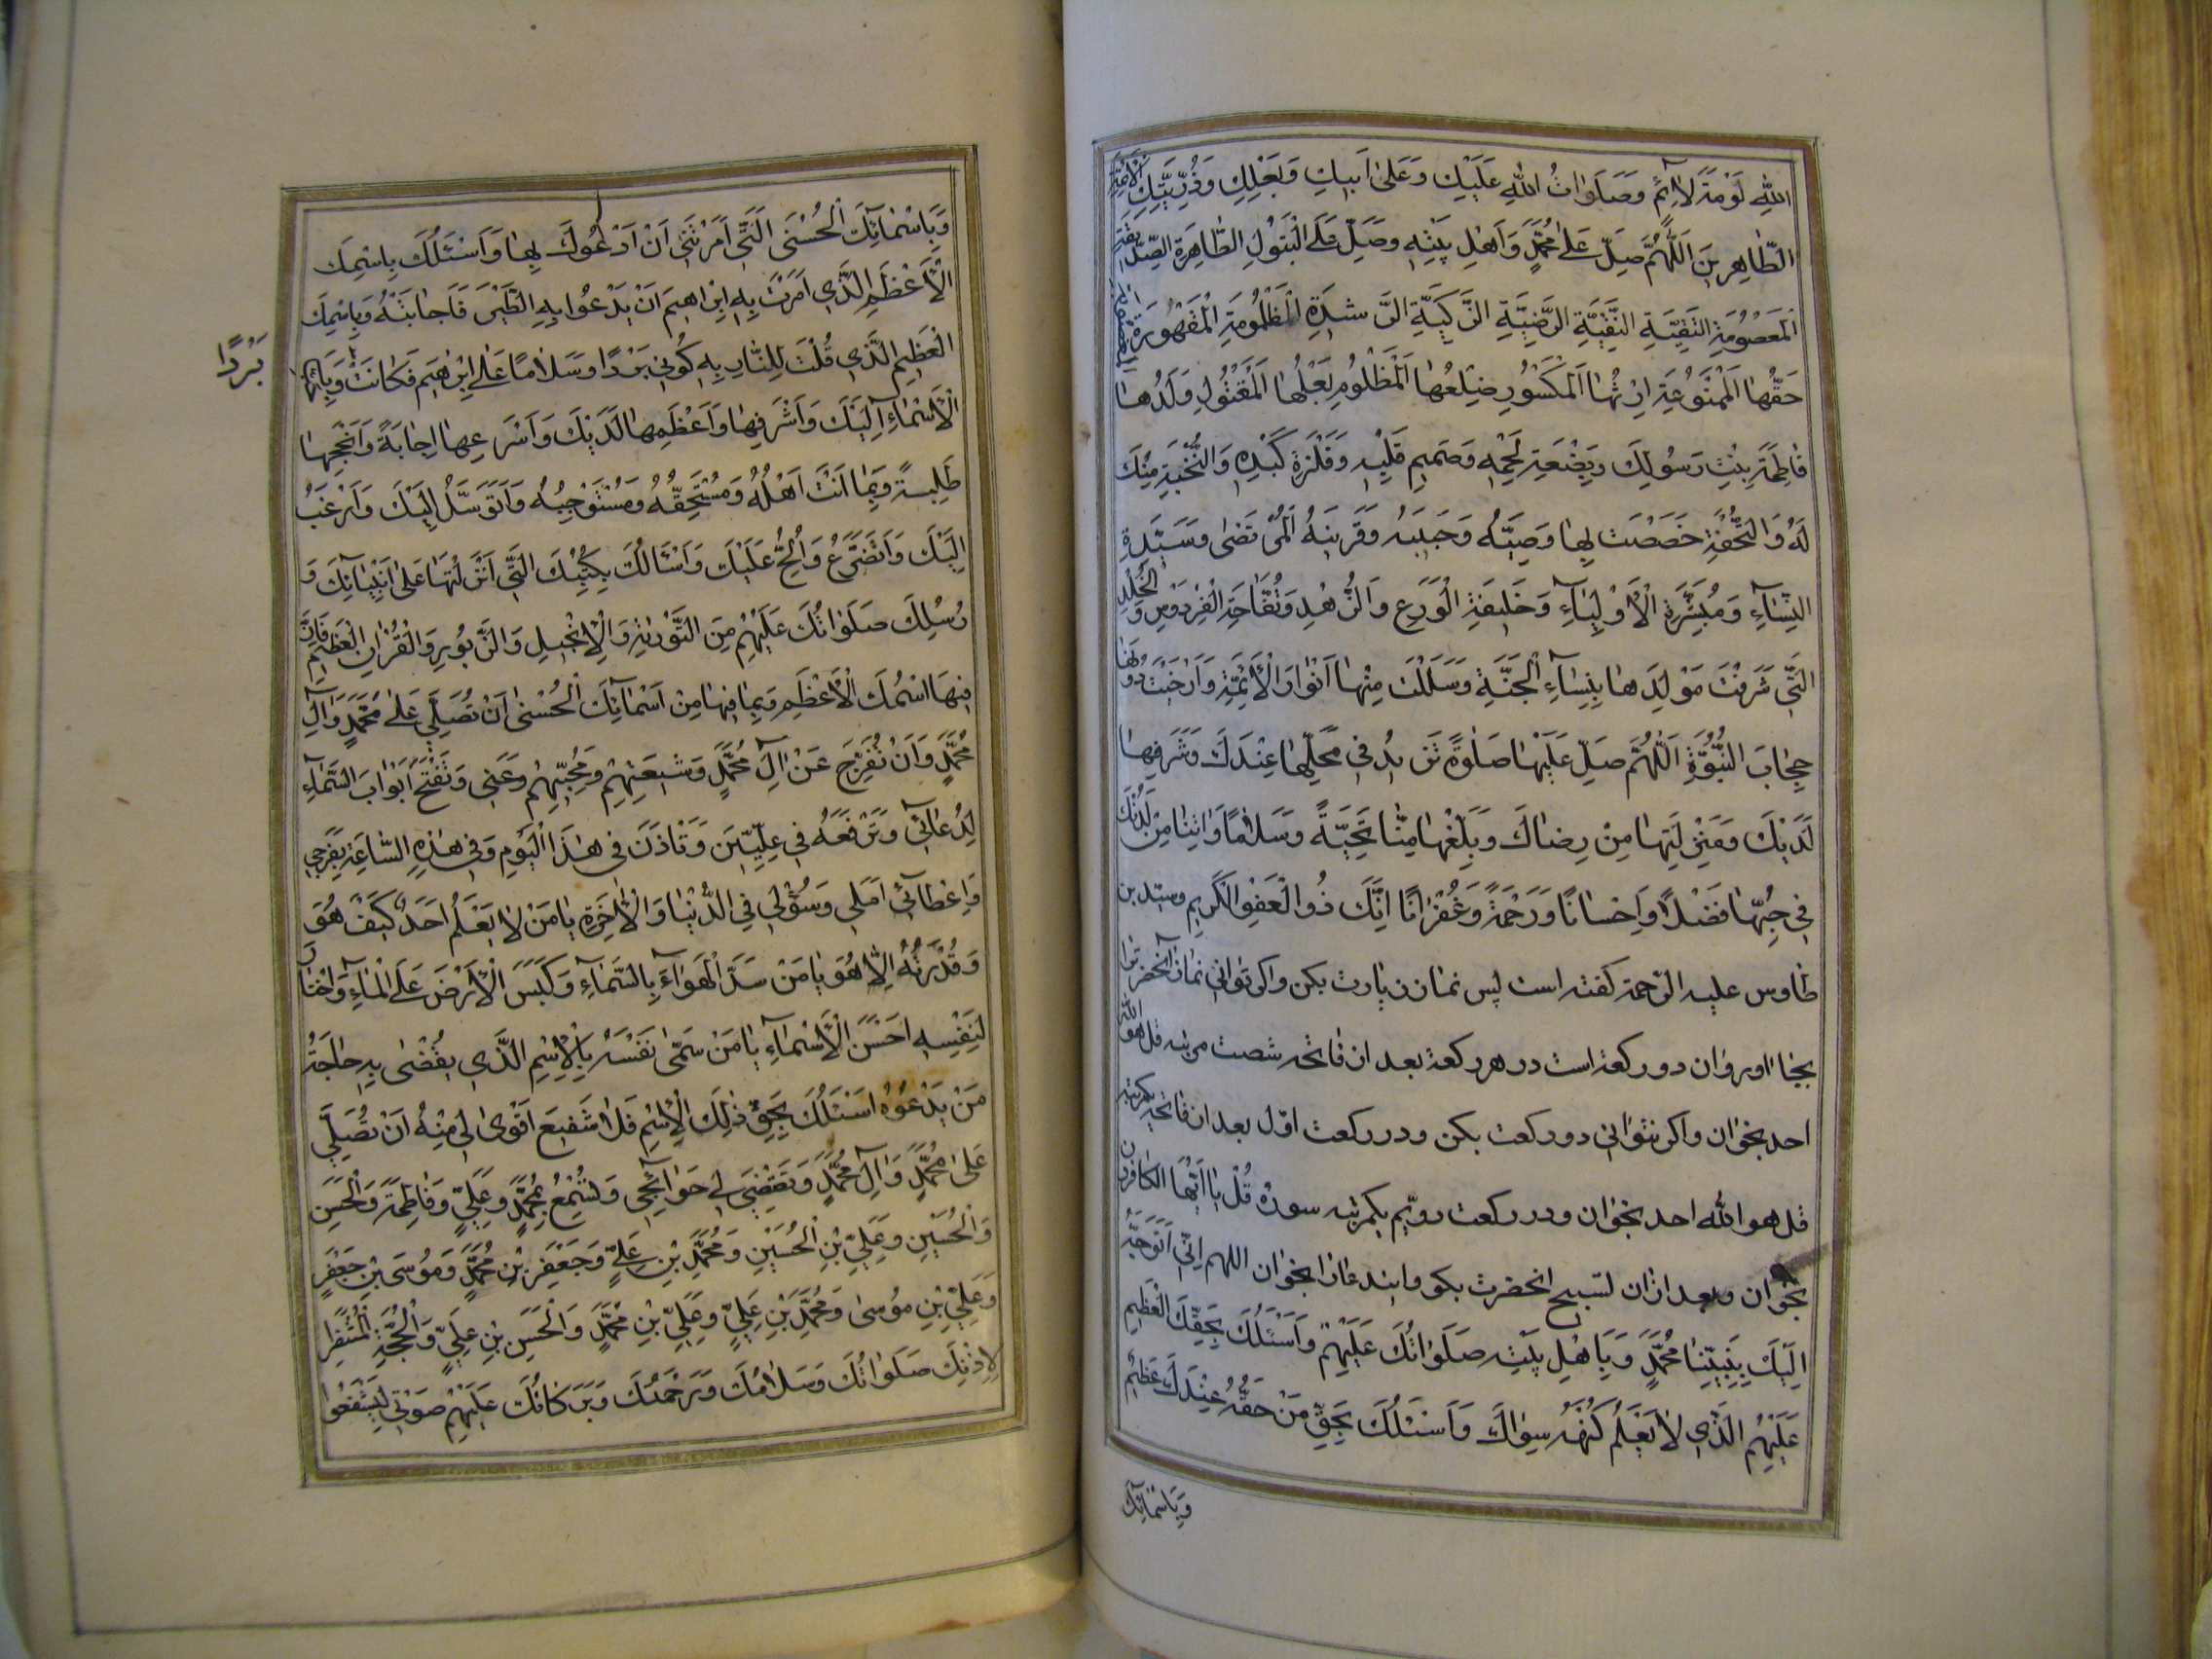 اللهِ لَوْمَةَ لَائِمٍ وَصَلَوَاتُ اللهِ عَلَيْكِ وَعَلَىٰ اَبِيكِ وَبَعْلِكِ وَذُرِّيَّتِكِ الْاَئِمَّةِ
الطَّاهِرِينَ اَللّٰهُمَّ صَلِّ عَلىٰ مُحَمَّدٍ وَاَهْلِ بَيْتِهِ وَصَلِّ عَلَى الْبَتُولِ الطَّاهِرَةِ الصِّدِّيقَةِ
اَلْمَعْصُومَةِ التَّقِيَّةِ النَّقِيَّةِ الرَّضِيَّةِ الزَّكِيَّةِ الرَّشِيدَةِ الْمَظْلُومَةِ الْمَقْهُورَةِ
حَقُّهَا الْمَمْنُوعَةِ اِرْثُهَا الْمَكْسُورِ ضِلْعُهَا الْمَظْلُومِ بَعْلُهَا الْمَقْتُولِ وَلَدُهَا
فَاطِمَةَ بِنْتِ رَسُولِكَ وَبَضْعَةِ لَحْمِهِ وَصَمِيمِ قَلْبِهِ وَفَلْذَةِ كَبِدِهِ وَالنُّخْبَةِ مِنْكَ
لَهُ وَالتُّحْفَةِ خَصَصْتَ بِهَا وَصِيَّهُ وَحَبِيبَهُ وَقَرِينَهُ الْمُرْتَضٰى وَسَيِّدَةِ
النِّسَاءِ وَمُبَشِّرَةِ الْاَوْلِيَاءِ وَحَلِيفَةِ الْوَرَعِ وَالزُّهْدِ وَتُفَّاحَةِ الْفِرْدَوْسِ وَالْخُلْدِ
الَّتِي شَرَّفْتَ مَوْلِدَهَا بِنِسَاءِ الْجَنَّةِ وَسَلَلْتَ مِنْهَا اَنْوَارَ الْاَئِمَّةِ وَاَرْخَيْتَ دُونَهَا
حِجَابَ النُّبُوَّةِ اَللّٰهُمَّ صَلِّ عَلَيْهَا صَلٰوةً تَزِيدُ فِي مَحَلِّهَا عِنْدَكَ وَشَرَفِهَا
لَدَيْكَ وَمَنْزِلَتِهَا مِنْ رِضَاكَ وَبَلِّغْهَا مِنَّا تَحِيَّةً وَسَلَامًا وَاٰتِنَا مِنْ لَدُنْكَ
فِي حُبِّهَا فَضْلًا وَاِحْسَانًا وَرَحْمَةً وَغُفْرَانًا اِنَّكَ ذُو الْعَفْوِ الْكَرِيمِ وسيد بن
طاوس عليه الرّحمة كفته است پس نماز زيارت بكن واكر توانى نماز آنحضرترا
بجا اور وان دو ركعة است در هر ركعة بعد از فاتحه شصت مرتبه قل هو الله
احد بخوان واكر نتوانى دو ركعت بكن ودر ركعت اوّل بعد از فاتحه يكمرتبه
قل هو الله احد بخوان ودر ركعت دويّم يكمرتبه سورهٔ قُلْ يَا اَيُّهَا الكافرون
بخوان وبعد ازان تسبيح انحضرت بكو واين دعا را بخوان اللهم اِنّي اَتَوَجَّهُ
اِلَيْكَ بِنَبِيِّنَا مُحَمَّدٍ وَبِاَهْلِ بَيْتِهِ صَلَوَاتُكَ عَلَيْهِمْ وَاَسْئَلُكَ بِحَقِّكَ الْعَظِيمِ
عَلَيْهِمُ الَّذِي لَا يَعْلَمُ كُنْهَهُ سِوَاكَ وَاَسْئَلُكَ بِحَقِّ مَنْ حَقُّهُ عِنْدَكَ عَظِيمٌ
وَبِاَسْمَائِكَ
وَبِاَسْمَائِكَ الْحُسْنَى الَّتِي اَمَرْتَنِي اَنْ اَدْعُوكَ بِهَا وَاَسْئَلُكَ بِاسْمِكَ
الْاَعْظَمِ الَّذِي اَمَرْتَ بِهِ اِبْرٰاهِيمَ اَنْ يَدْعُوا بِهِ الطَّيْرَ فَاَجَابَتْهُ وَبِاسْمِكَ
الْعَظِيمِ الَّذِي قُلْتَ لِلنَّارِ بِهِ كُونِي بَرْدًا وَسَلَامًا عَلىٰ اِبْرٰهِيمَ فَكَانَتْ وَبِاَحَبِّ
بَرْدًا
الْاَسْمَاءِ اِلَيْكَ وَاَشْرَفِهَا وَاَعْظَمِهَا لَدَيْكَ وَاَسْرَعِهَا اِجَابَةً وَاَنْجَحِهَا
طَلِبَةً وَبِمَا اَنْتَ اَهْلُهُ وَمُسْتَحِقُّهُ وَمُسْتَوْجِبُهُ وَاَتَوَسَّلُ اِلَيْكَ وَاَرْغَبُ
اِلَيْكَ وَاَتَضَرَّعُ وَاُلِحُّ عَلَيْكَ وَاَسْئَالُكَ بِكُتُبِكَ الَّتِي اَنْزَلْتَهَا عَلىٰ اَنْبِيَائِكَ وَ
رُسُلِكَ صَلَوَاتُكَ عَلَيْهِمْ مِنَ التَّوْرٰيةِ وَالْاِنْجِيلِ وَالزَّبُورِ وَالْقُرْاٰنِ الْعَظِيمِ فَاِنَّ
فِيهَا اسْمُكَ الْاَعْظَمِ وَبِمَا فِيهَا مِنْ اَسْمَائِكَ الْحُسْنٰى اَنْ تُصَلِّيَ عَلىٰ مُحَمَّدٍ وَاٰلِ
مُحَمَّدٍ وَاَنْ تُفَرِّجَ عَنْ اٰلِ مُحَمَّدٍ وَشِيعَتِهِمْ وَمُحِبِّيهِمْ وَعَنِّي وَتَفْتَحَ اَبْوَابَ السَّمَاءِ
لِدُعَائِي وَتَرْفَعَهُ فِي عِلِّيِّينَ وَتَاْذَنَ فِي هٰذَا الْيَوْمِ وَفِي هٰذِهِ السَّاعَةِ بِفَرَجِي
وَاِعْطَائِي اَمَلِي وَسُؤْلِي فِي الدُّنْيَا وَالْاٰخِرَةِ يَا مَنْ لَا يَعْلَمُ اَحَدٌ كَيْفَ هُوَ
وَقُدْرَتُهُ اِلَّا هُوَ يَا مَنْ سَدَّ الْهَوَاءَ بِالسَّمَاءِ وَكَبَسَ الْاَرْضَ عَلَى الْمَاءِ وَاخْتَارَ
لِنَفْسِهِ اَحْسَنَ الْاَسْمَاءِ يَا مَنْ سَمّٰى نَفْسَهُ بِالْاِسْمِ الَّذِي يُقْضٰى بِهِ حَاجَةُ
مَنْ يَدْعُوهُ اَسْئَلُكَ بِحَقِّ ذٰلِكَ الْاِسْمِ فَلَا شَفِيعَ اَقْوٰى لِي مِنْهُ اَنْ تُصَلِّيَ
عَلىٰ مُحَمَّدٍ وَاٰلِ مُحَمَّدٍ وَتَقْضِيَ لِي حَوَائِجِي وَتُسْمِعَ بِمُحَمَّدٍ وَعَلِيٍّ وَفَاطِمَةَ وَالْحَسَنِ
وَالْحُسَيْنِ وَعَلِيِّ بْنِ الْحُسَيْنِ وَمُحَمَّدِ بْنِ عَلِيٍّ وَجَعْفَرِ بْنِ مُحَمَّدٍ وَمُوسَى بْنِ جَعْفَرٍ
وَعَلِيِّ بْنِ مُوسىٰ وَمُحَمَّدِ بْنِ عَلِيٍّ وَعَلِيِّ بْنِ مُحَمَّدٍ وَالْحَسَنِ بْنِ عَلِيٍّ وَالْحُجَّةِ
لِاِذْنِكَ صَلَوَاتُكَ وَسَلَامُكَ وَرَحْمَتُكَ وَبَرَكَاتُكَ عَلَيْهِمْ صَوْتِي لِيَشْفَعُوا